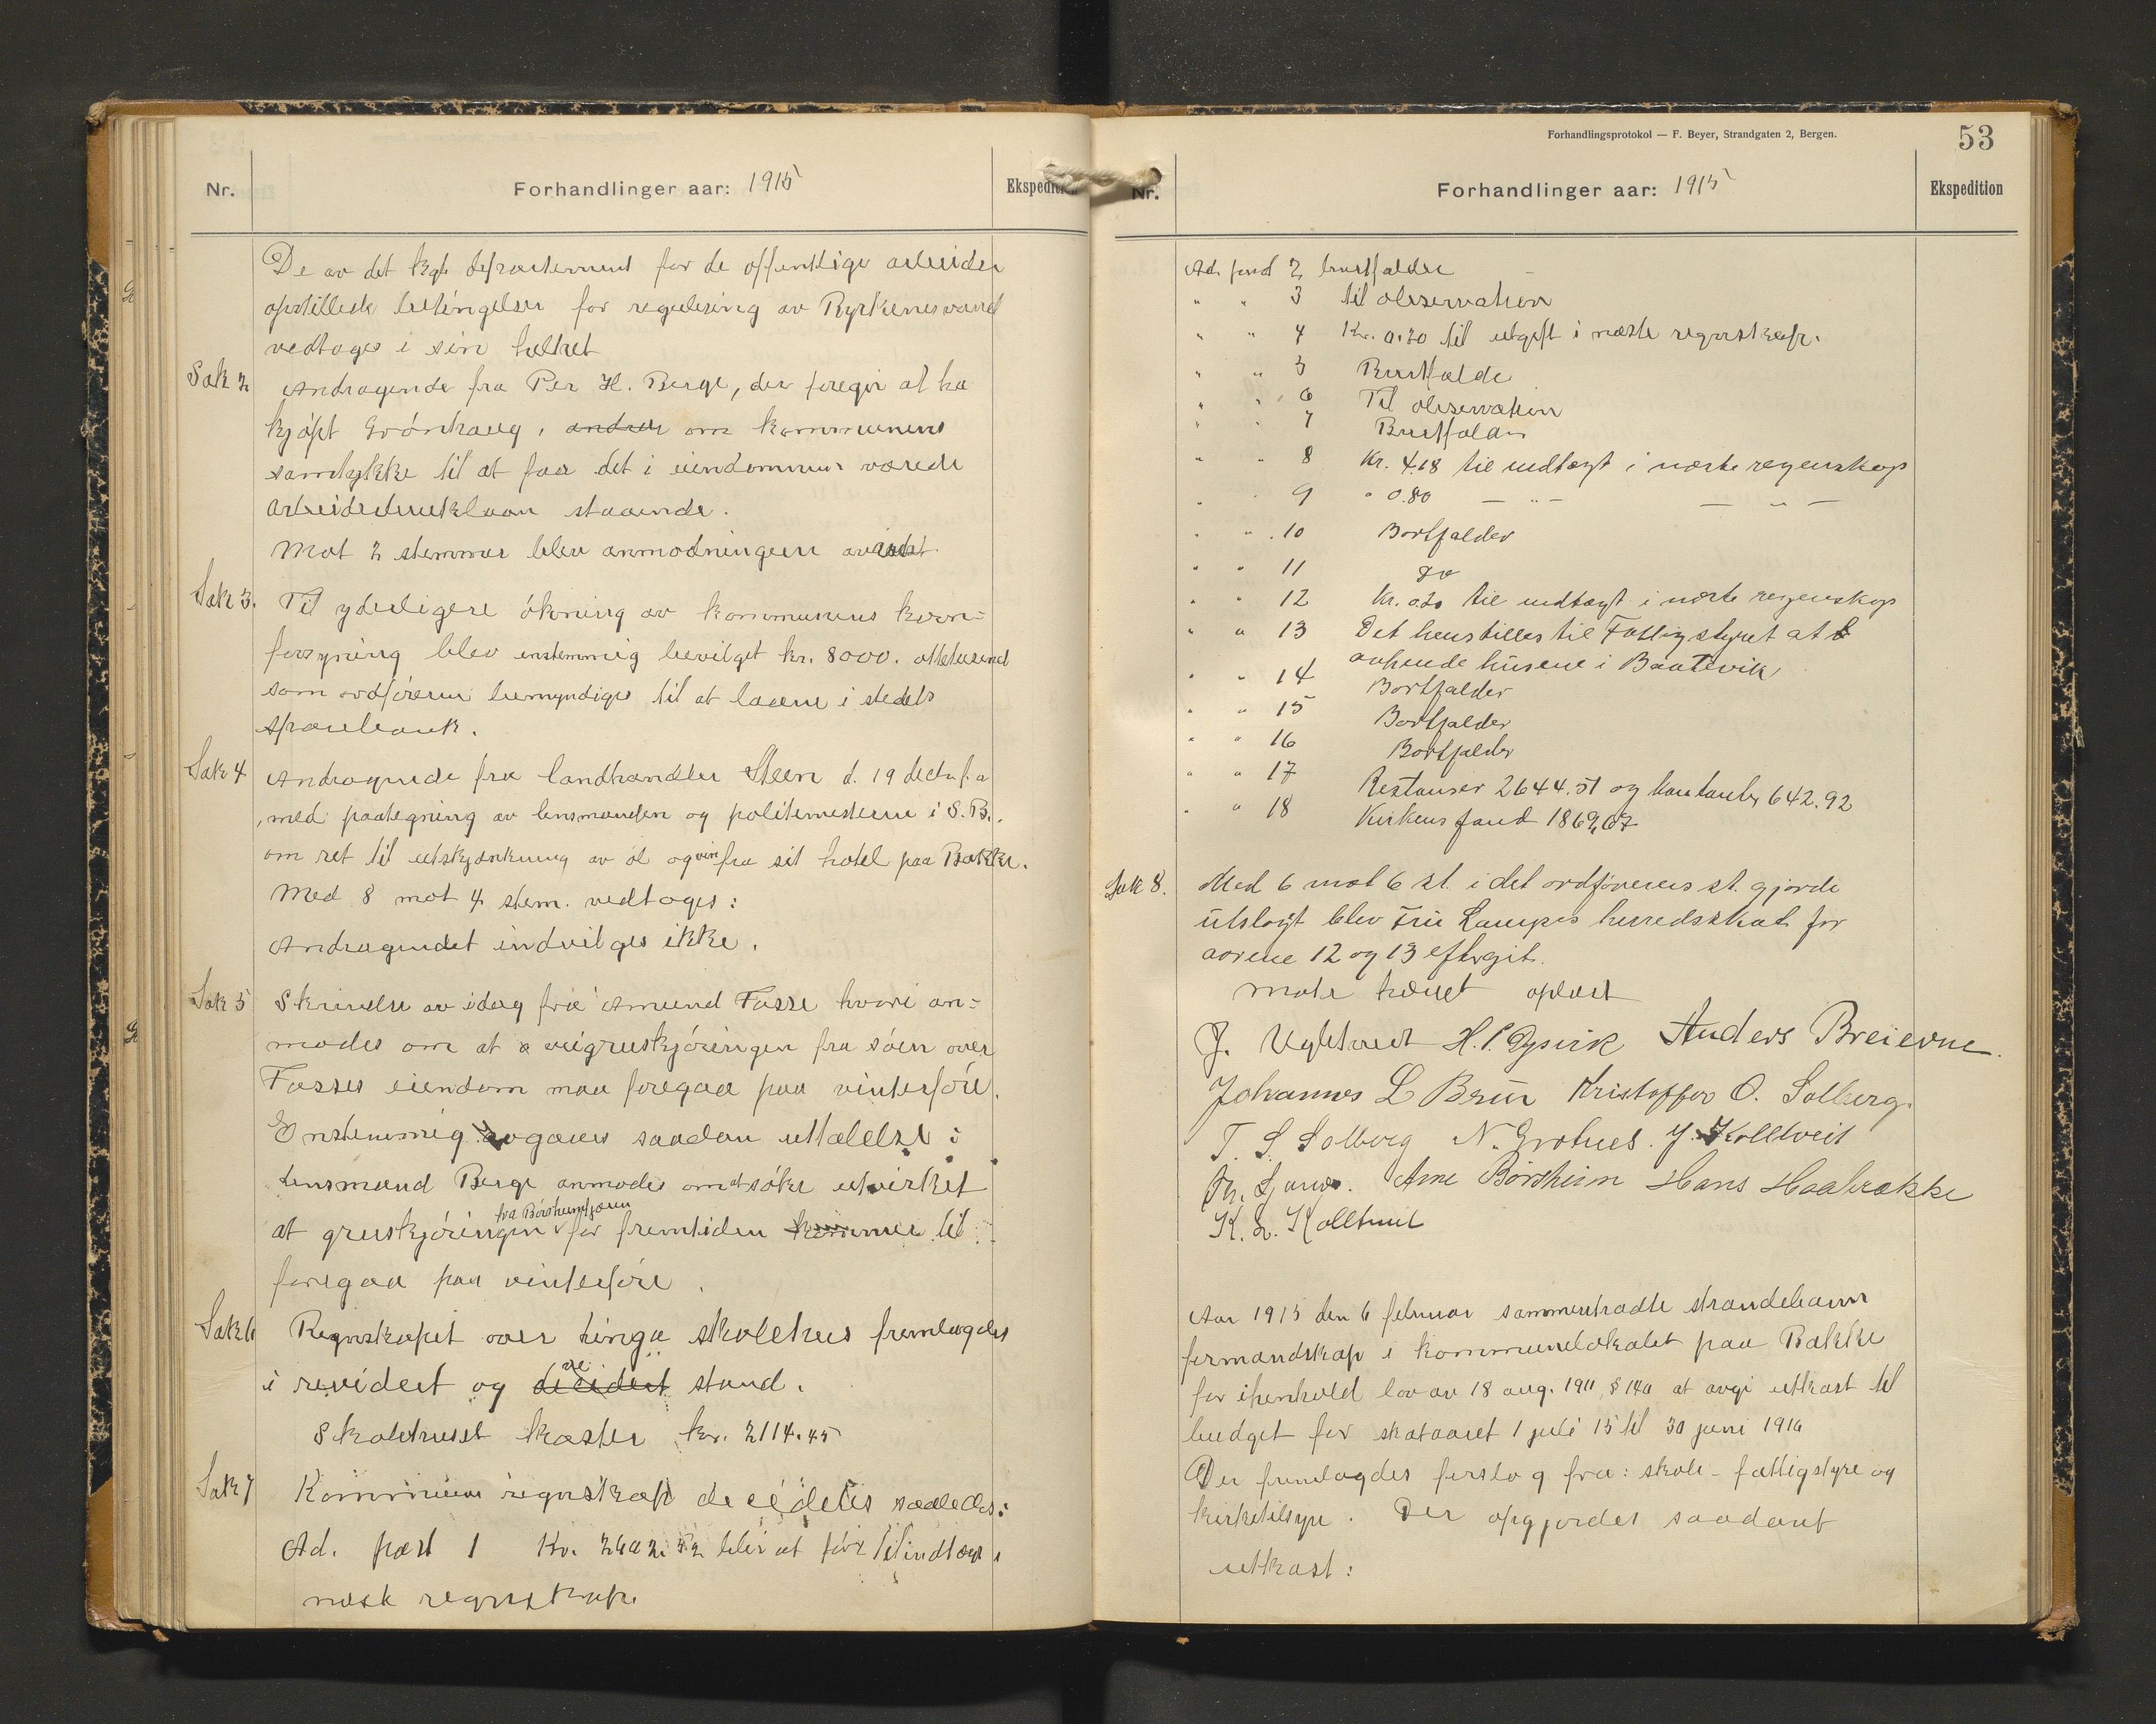 Nr.
Forhandlinger aar: 1915
Ekspedition
De av det kgl. departement for de offentlige arbeider
opstillede betingelser for regulering av Byrkenesvand
vedtages i sin helhet
Sak 2
Andragende fra Per H. Berge, der foregir at ha
kjøpt Grönhaug, andrar om kommunens
samtykke til at faa det i eiendommen værende
arbeiderbruklaan staaende.
Mot 2 stemmer blev anmodningen avvist.
Sak 3.
Til yderligere ökning av kommunens korn-
forsyning blev enstemmig bevilget kr. 8000. ottetusend
som ordføreren bemyndiges til at laane i stedets
sparebank.
Sak 4
Andragende fra landhandler Steen d. 19 decbr f.a
, med paategning av lensmanden og politimesteren i S.B.
om ret til utskjænkning av öl og vin fra sit hotel paa Bakke.
Med 8 mot 4 stem. vedtoges:
Andragendet indvilges ikke.
Sak 5
Skrivelse av idag fra Amund Fosse hvori an-
modes om at veigruskjöringen fra söen over
Fosses eiendom maa foregaa paa vinterföre.
Enstemmig avgaves saadan uttalelse:
Lensmand Berge anmodes om at söke utvirket
at gruskjöringen fra Börsheimtjörn for fremtiden kommer til
foregaa paa vinterföre.
Sak 6
Regnskapet over Linga skolehus fremlagdes
i revidert og decidert stand.
Skolehuset koster kr. 2114.45
Sak 7
Kommune regnskap decideres saaledes:
Ad. post 1 Kr. blir at före til indtægt i
næste regnskap.
Forhandlingsprotokol — F. Beyer, Strandgaten 2, Bergen.
53
Nr.
Forhandlinger aar: 1915
Ekspedition
Ad post 2 bortfalder
" " 3 til observation
" " 4 Kr. 0.20 til utgift i næste regnskap.
" " 5 Bortfalde
" " 6 Til observation
" " 7 Bortfalder
" " 8 Kr. 4.18 til indtægt i næste regnskap
" " 9 " 0.80 — " — — " —
" " 10 Bortfalder
" " 11 do
" " 12 Kr. 0.20 til indtægt i næste regnskap
" " 13 Det henstilles til Fattigstyret at
avhende husene i Baatevik
" " 14 Bortfalder
" " 15 Bortfalder
" " 16 Bortfalder
" " 17 Restanser 2644.51 og kontanter 642.92
" " 18 Kirkens fond 1869,67
Sak 8.
Med 6 mot 6 st. i det ordförerens st. gjorde
utslagt blev Fru Lampes herredsskat for
aarene 12 og 13 eftergit.
Möte hævet oplæst
J. Ugletveit H. P. Dysvik Anders Breievne.
Johannes L Brun Kristoffer O. Solberg.
T. S. Solberg N. Grotnes. J. Kolltveit
Arne Börsheim Hans Haabrække
K. L. Kolltveit
Aar 1915 den 6 februar sammentraadte strandebarm
formandskap i kommunelokalet paa Bakke
for ihenhold lov av 18 aug. 1911, § 14a at avgi utkast til
budget for skataaret 1 juli 15 til 30 juni 1916
Der fremlagdes forslag fra: skole- fattigstyre og
kirketilsyn. Der opgjordes saadant
utkast: